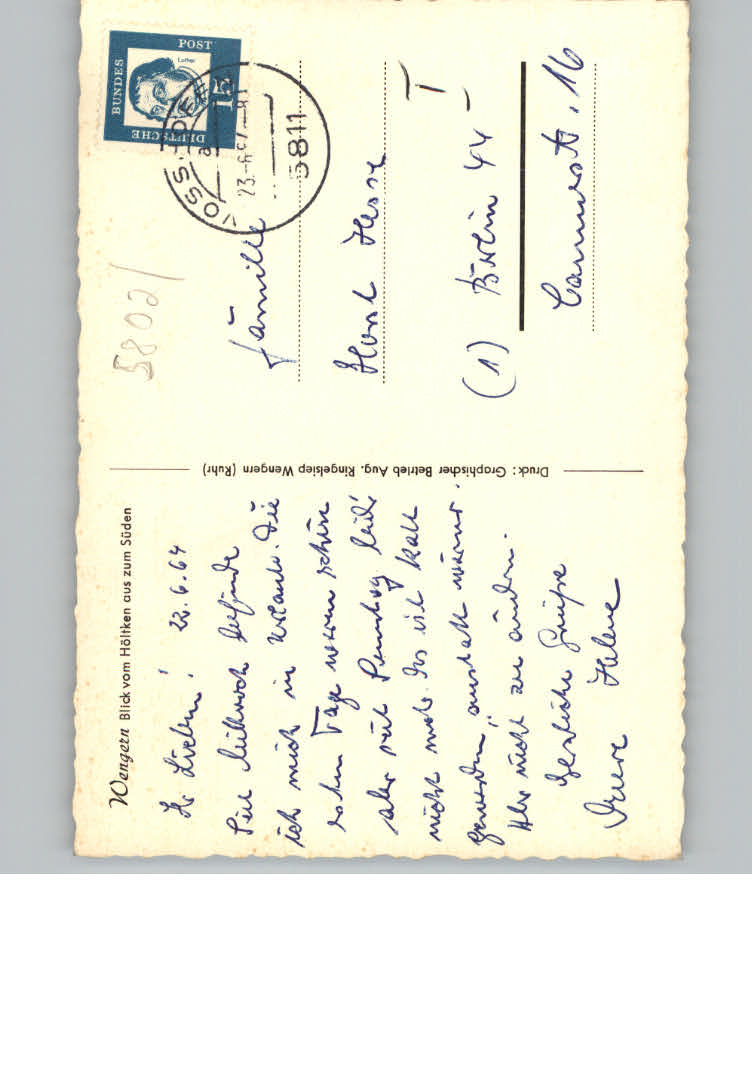 Wengern Blick vom Höltken aus zum Süden
Ihr Lieben! 23.6.64
Seit Mittwoch befinde
ich mich in Urlaub. Die
ersten Tage waren schön
aber seit Sonntag leider
nicht mehr. Es ist kalt
geworden, anstatt wärmer.
Aber nicht zu ändern.
Herzliche Grüße
Eure Helene
Druck: Graphischer Betrieb Aug. Ringelsiep Wengern (Ruhr)
5802/
DEUTSCHE
BUNDES
POST
Luther
15
VOSS
a
23.-6.64
5811
Familie
Horst Hesse
I
(1) Berlin 44
16